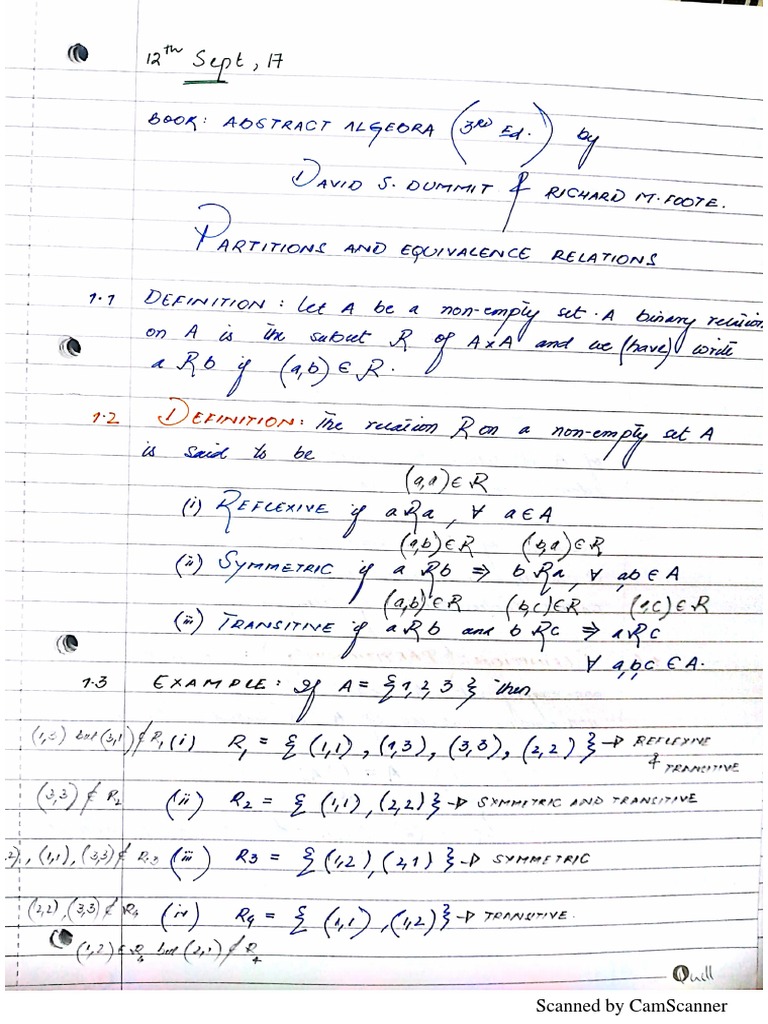 12th Sept, 17
BOOK: ABSTRACT ALGEBRA (3RD Ed.) by
DAVID S. DUMMIT & RICHARD M. FOOTE.
PARTITIONS AND EQUIVALENCE RELATIONS
1.1 DEFINITION: Let A be a non-empty set. A binary relation
on A is the subset R of A×A and we (have) write
a R b if (a,b) ∈ R.
1.2 DEFINITION: The relation R on a non-empty set A
is said to be
(a,a) ∈ R
(i) REFLEXIVE if aRa, ∀ a∈A
(a,b) ∈ R (b,a) ∈ R
(ii) SYMMETRIC if a Rb ⇒ b Ra, ∀ ab∈A
(a,b) ∈ R (b,c) ∈ R (a,c) ∈ R
(iii) TRANSITIVE if aRb and bRc ⇒ aRc
∀ a,b,c ∈ A.
1.3 EXAMPLE: If A = {1,2,3} then
(1,3) but (3,1) ∉ R1 (i) R1 = {(1,1), (1,3), (3,3), (2,2)} → REFLEXIVE
& TRANSITIVE
(3,3) ∉ R2 (ii) R2 = {(1,1), (2,2)} → SYMMETRIC AND TRANSITIVE
2), (1,1), (3,3) ∉ R3 (iii) R3 = {(1,2), (2,1)} → SYMMETRIC
(2,2), (3,3) ∉ R4 (iv) R4 = {(1,1), (1,2)} → TRANSITIVE.
(1,2) ∈ R4 but (2,1) ∉ R4
Quill
Scanned by CamScanner